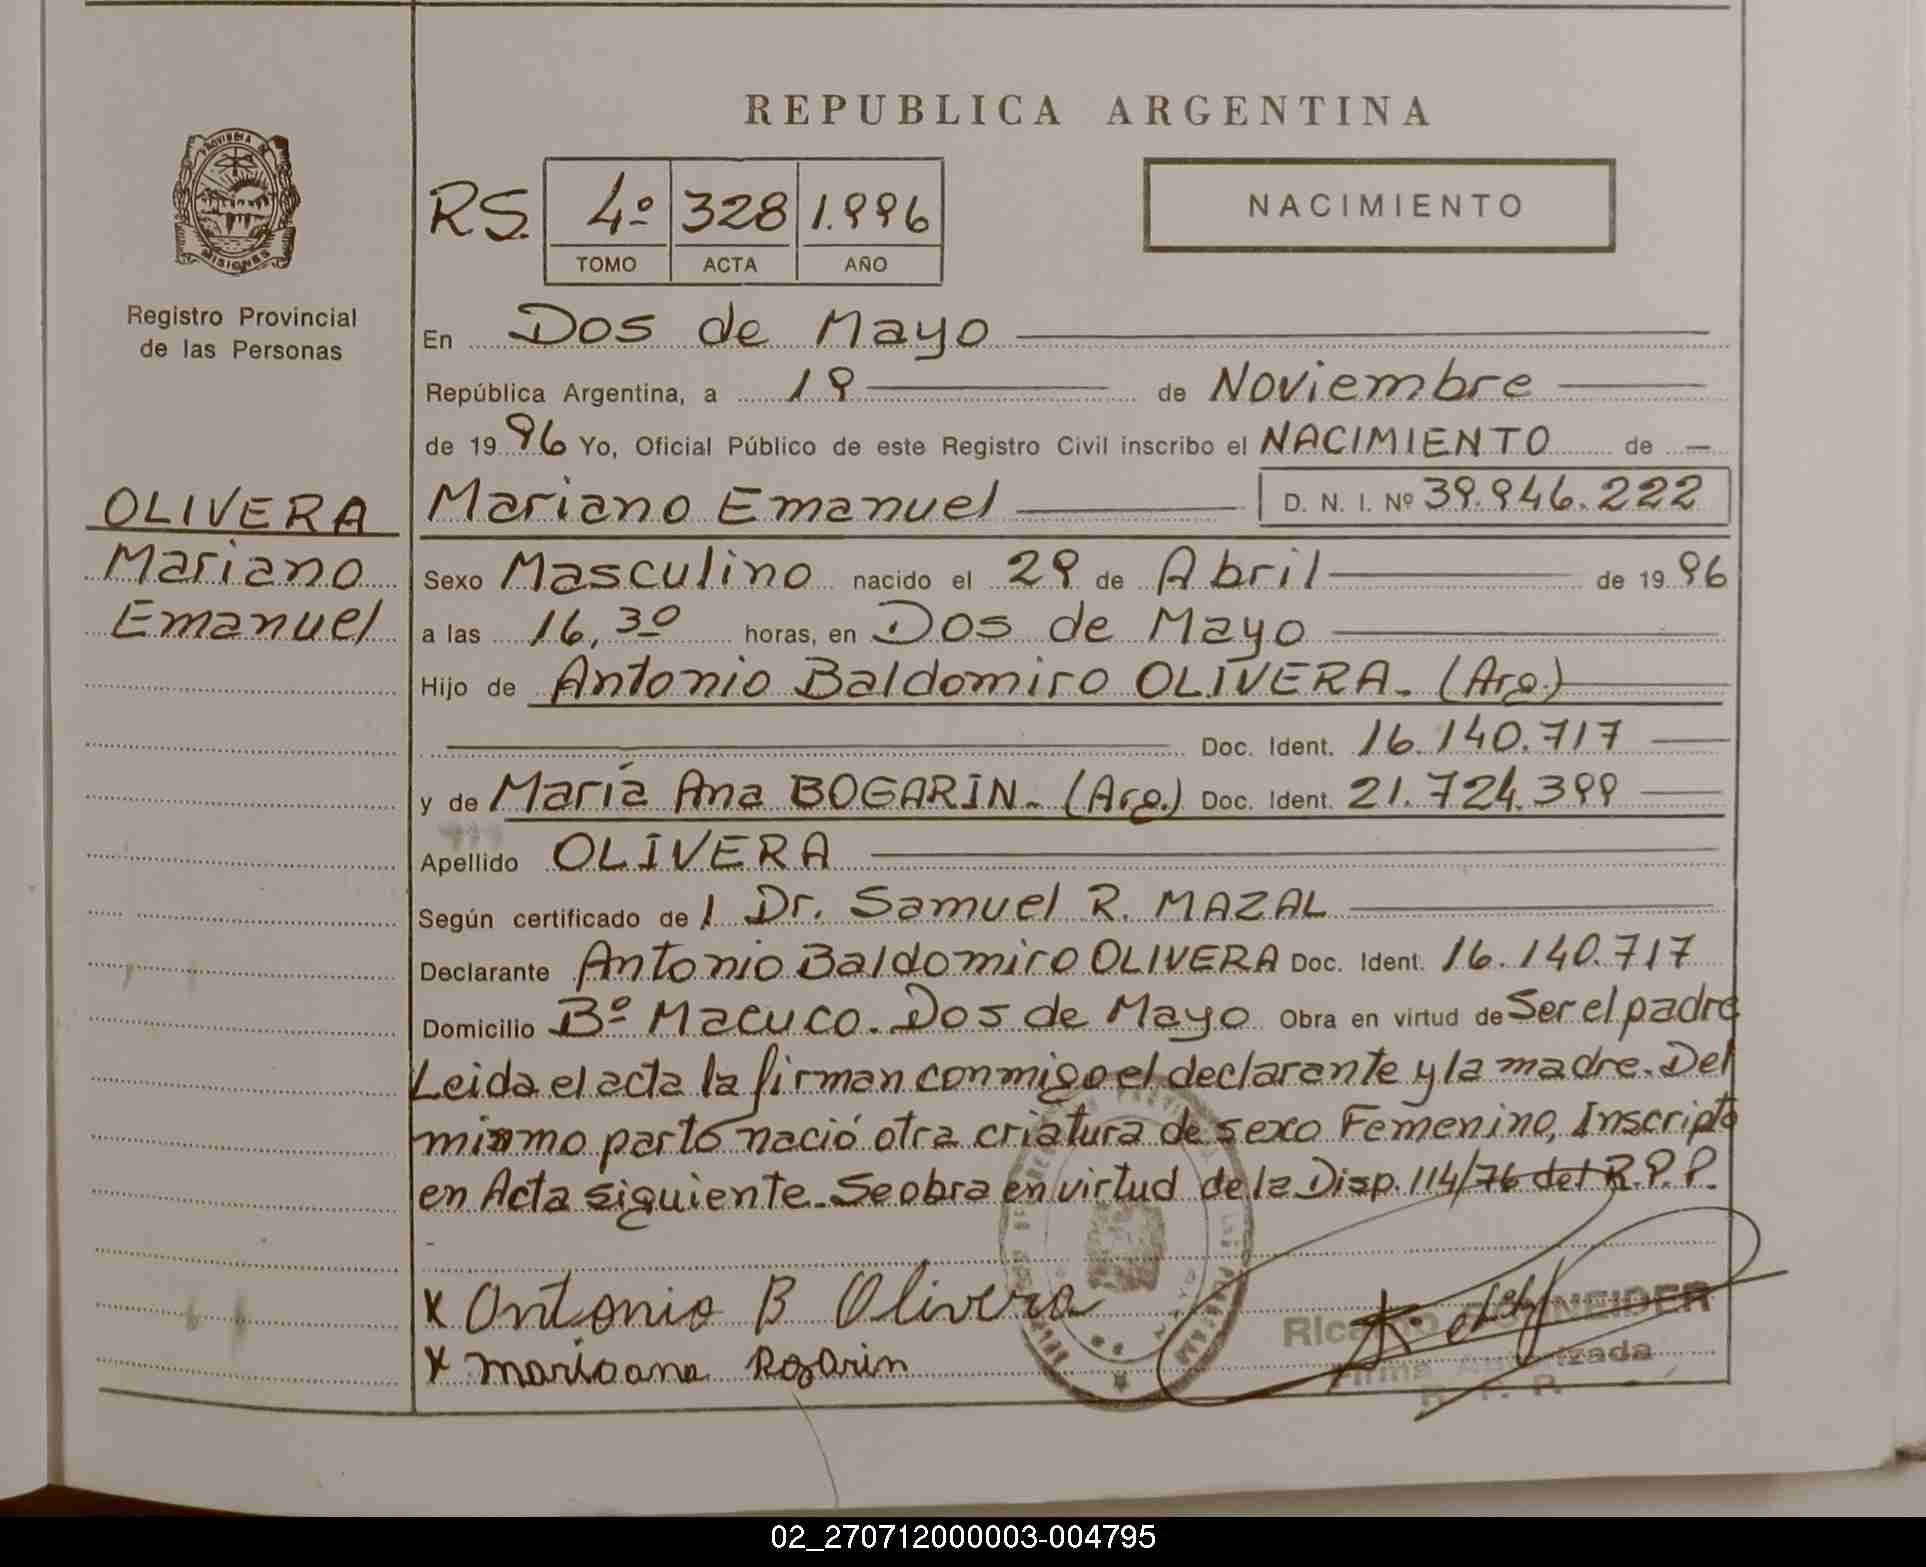 REPUBLICA ARGENTINA
PROVINCIA DE
MISIONES
Registro Provincial
de las Personas
RS. 4º 328 1.996
TOMO ACTA AÑO
NACIMIENTO
En Dos de Mayo
República Argentina, a 19 de Noviembre
de 1996 Yo, Oficial Público de este Registro Civil inscribo el NACIMIENTO de
OLIVERA
Mariano
Emanuel
Mariano Emanuel D. N. I. Nº 39.946.222
Sexo Masculino nacido el 29 de Abril de 1996
a las 16,30 horas, en Dos de Mayo
Hijo de Antonio Baldomiro OLIVERA. (Arg.)
Doc. Ident. 16.140.717
y de María Ana BOGARIN. (Arg.) Doc. Ident. 21.724.399
Apellido OLIVERA
Según certificado de l Dr. Samuel R. MAZAL
Declarante Antonio Baldomiro OLIVERA Doc. Ident. 16.140.717
Domicilio Bº Macuco. Dos de Mayo Obra en virtud de Ser el padre
Leida el acta la firman conmigo el declarante y la madre. Del
mismo parto nació otra criatura de sexo Femenino, Inscripta
en Acta siguiente. Se obra en virtud de la Disp. 114/76 del R.P.P.
x Antonio B Olivera
x marioana Bogarin
Ricardo SCHNEIDER
Firma Autorizada
R. P. P.
02_270712000003-004795